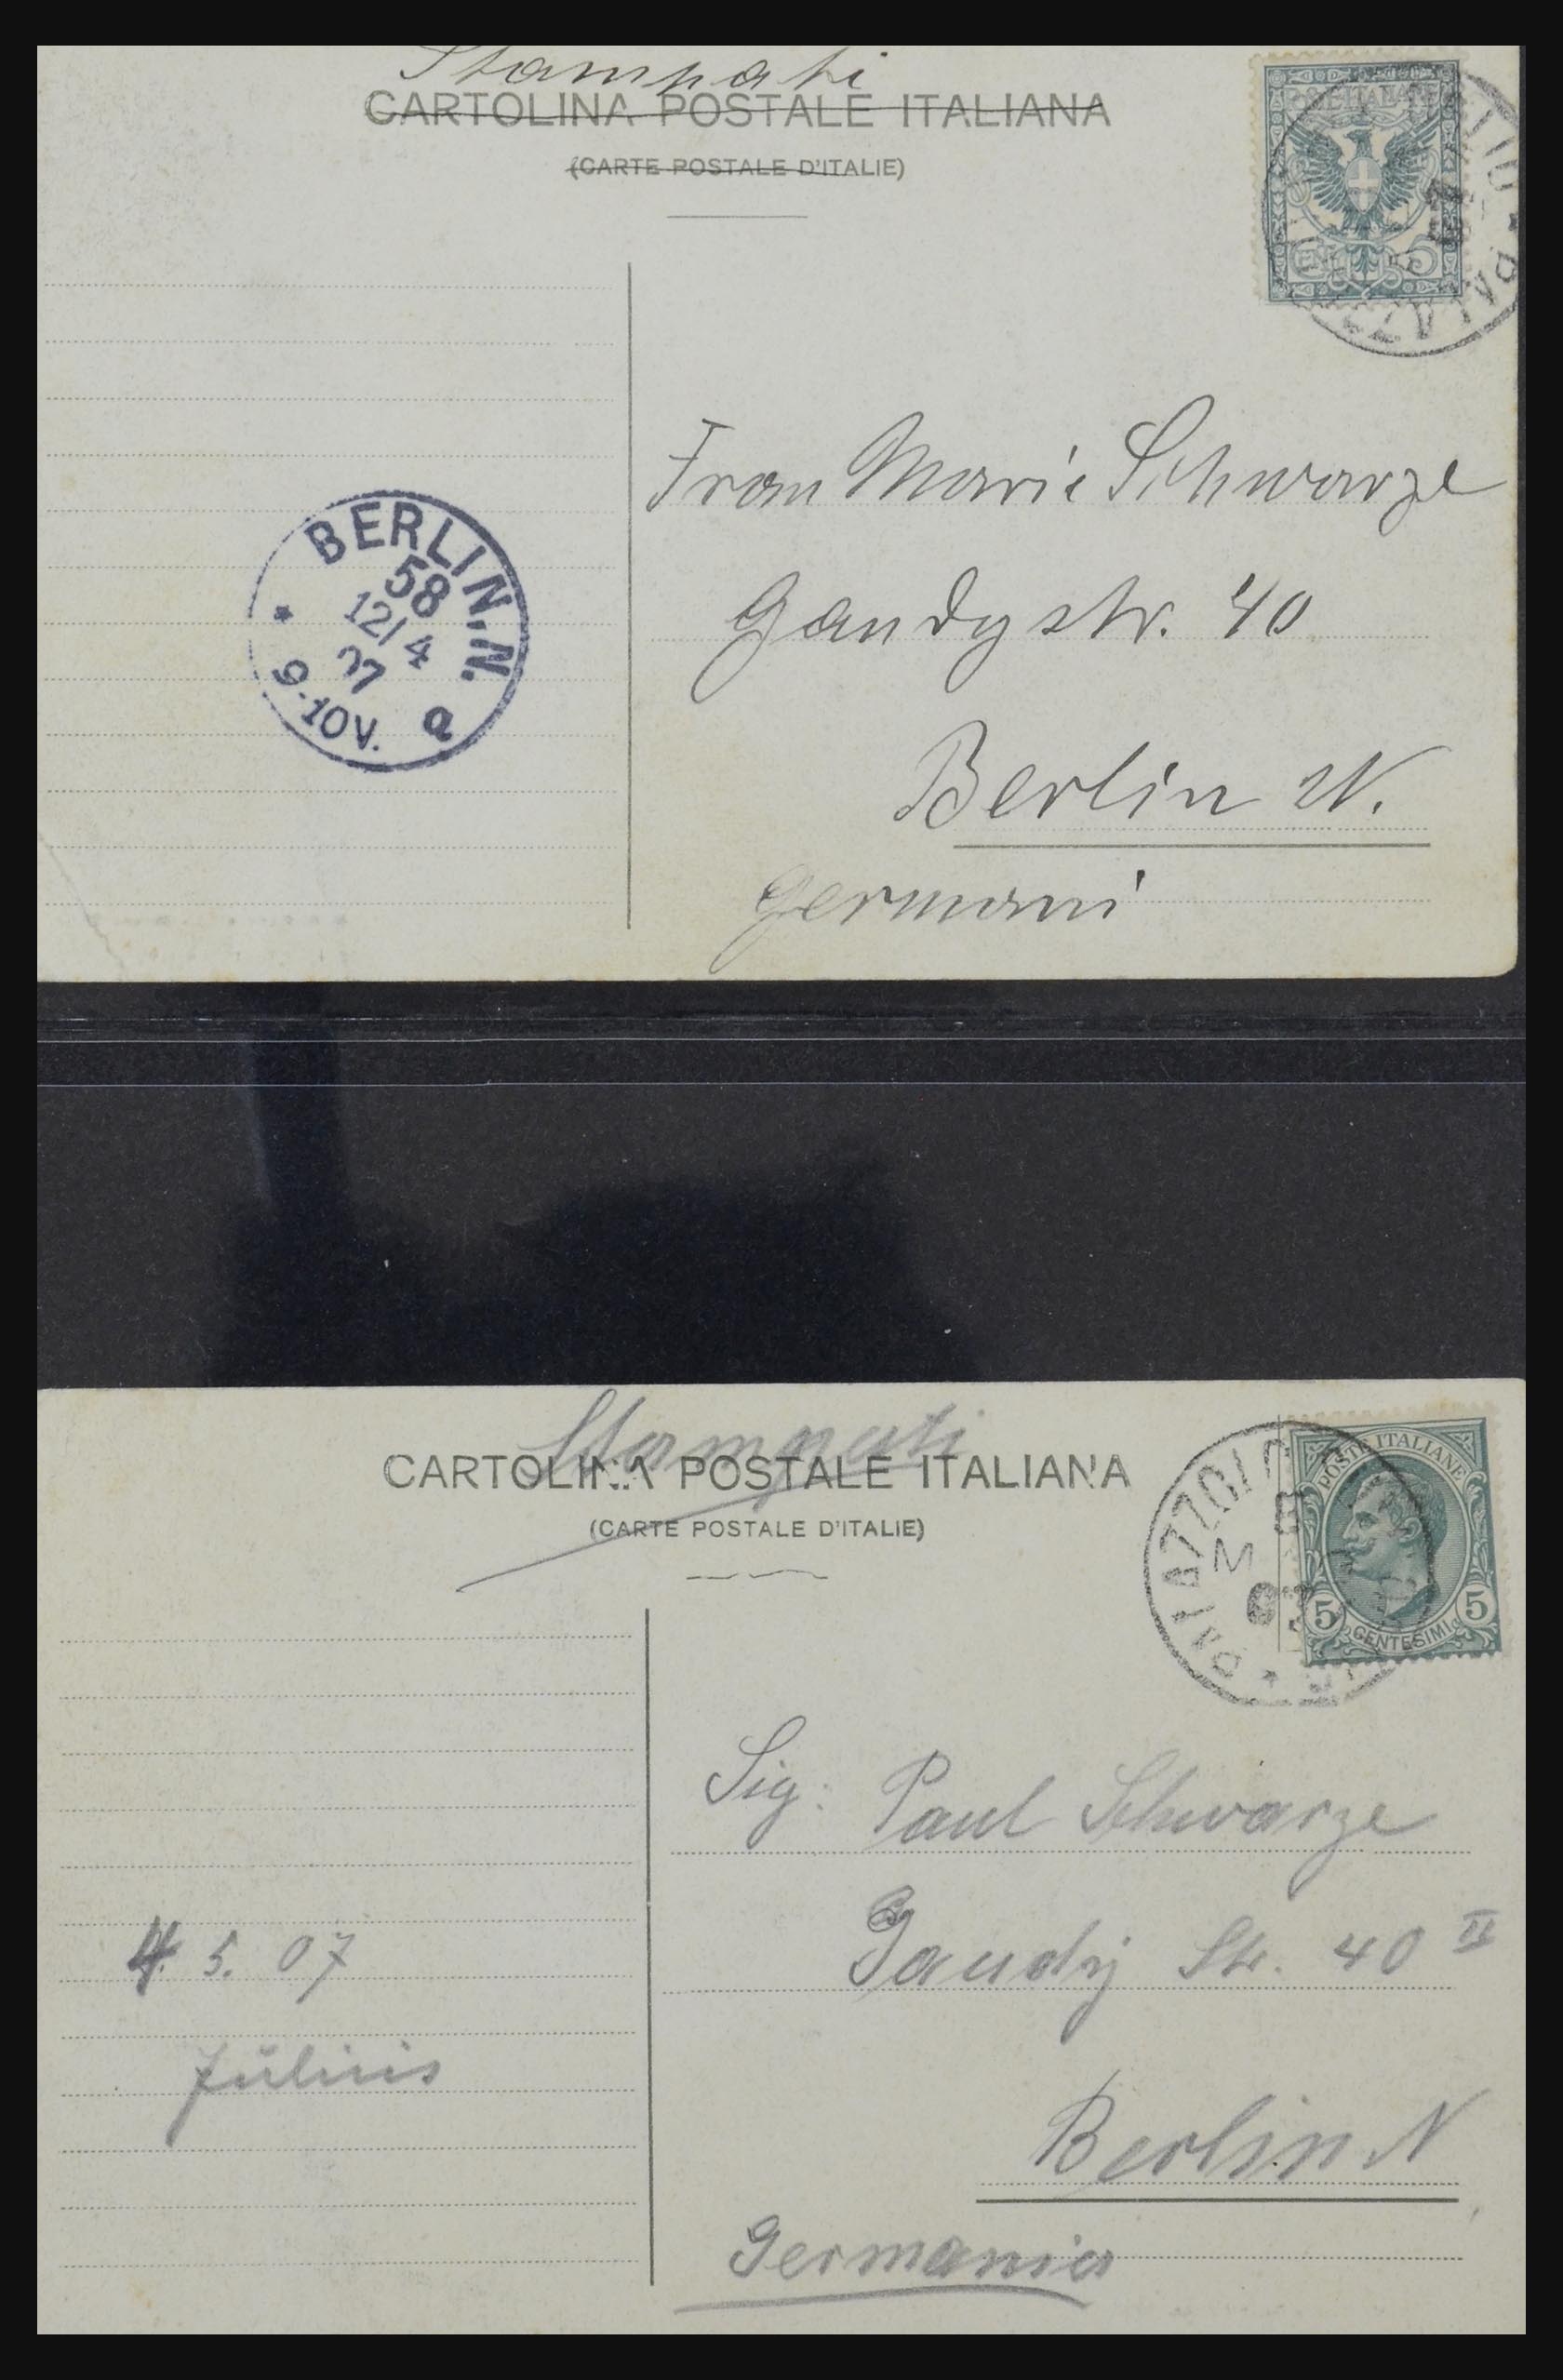 Stampati
CARTOLINA POSTALE ITALIANA
(CARTE POSTALE D'ITALIE)
POSTE ITALIANE
CENT. 5
BERLIN.N.
58
12/4
07
9-10V.
a
Frau Marie Schwarze
Gaudystr. 40
Berlin N.
Germani
Stampati
CARTOLINA POSTALE ITALIANA
(CARTE POSTALE D'ITALIE)
POSTE ITALIANE
5 5
CENTESIMI
07
Sig: Paul Schwarze
Gaudy Str. 40 II
Berlin N
Germania
4. 5. 07
Julius